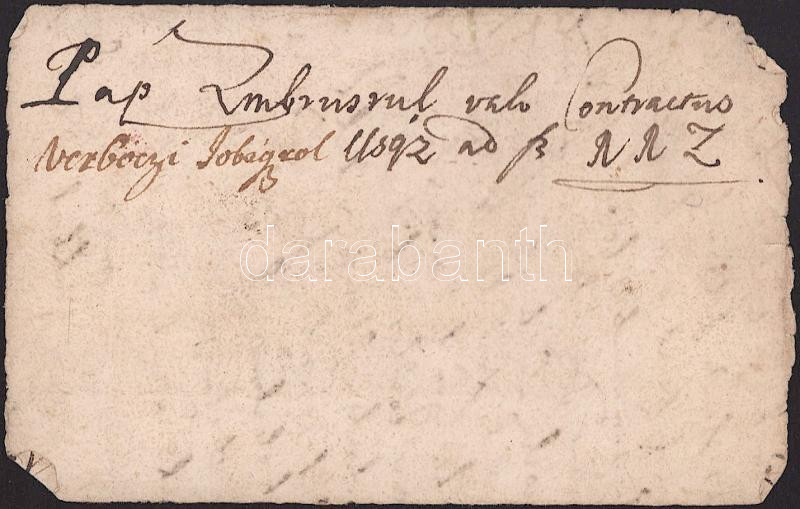 Pap Ambrusrul valo Contractus
Verböczi Jobagrol 1692 ad fl NNZ
darabanth